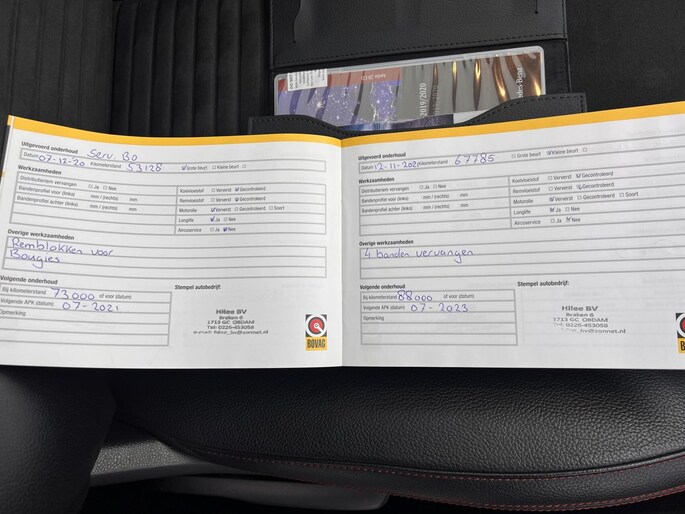 2019/2020
Uitgevoerd onderhoud
Serv. B0
Datum 07-12-20 Kilometerstand 53128 Grote beurt Kleine beurt
Werkzaamheden
Distributieriem vervangen Ja Nee
Bandenprofiel voor (links) mm / (rechts) mm
Bandenprofiel achter (links) mm / (rechts) mm
Koelvloeistof Ververst Gecontroleerd
Remvloeistof Ververst Gecontroleerd
Motorolie Ververst Gecontroleerd Soort
Longlife Ja Nee
Aircoservice Ja Nee
Overige werkzaamheden
Remblokken voor
Bougies
Volgende onderhoud
Bij kilometerstand 73000 of voor (datum)
Volgende APK (datum) 07-2021
Opmerking
Stempel autobedrijf:
Hilee BV
Braken 6
1713 GC OBDAM
Tel: 0226-453058
BOVAG
Uitgevoerd onderhoud
Datum 12-11-202 Kilometerstand 67785 Grote beurt Kleine beurt
Werkzaamheden
Distributieriem vervangen Ja Nee
Bandenprofiel voor (links) mm / (rechts) mm
Bandenprofiel achter (links) mm / (rechts) mm
Koelvloeistof Ververst Gecontroleerd
Remvloeistof Ververst Gecontroleerd
Motorolie Ververst Gecontroleerd Soort
Longlife Ja Nee
Aircoservice Ja Nee
Overige werkzaamheden
4 banden vervangen
Volgende onderhoud
Bij kilometerstand 88000 of voor (datum)
Volgende APK (datum) 07-2023
Opmerking
Stempel autobedrijf:
Hilee BV
Braken 6
1713 GC OBDAM
Tel: 0226-453058
BOVAG